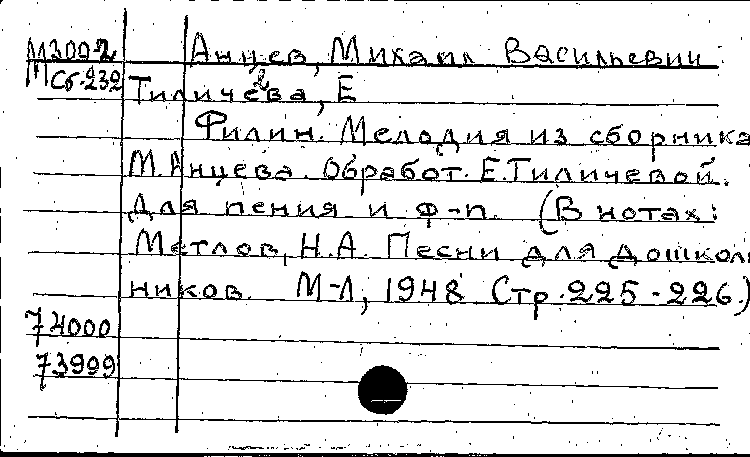 М3002 Анцев, Михаил Васильевич
МСб-232 Тиличева, Е
Филин. Мелодия из сборника
М. Анцева. Обработ. Е. Тиличевой.
Для пения и ф-п. (В нотах:
Метлов, Н.А. Песни для дошколь
ников. М-Л, 1948 Стр. 225-226.)
74000
73999